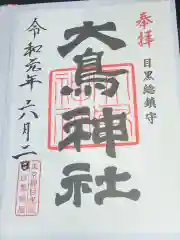 奉拝
目黒総鎮守
大鳥神社
令和元年六月二日